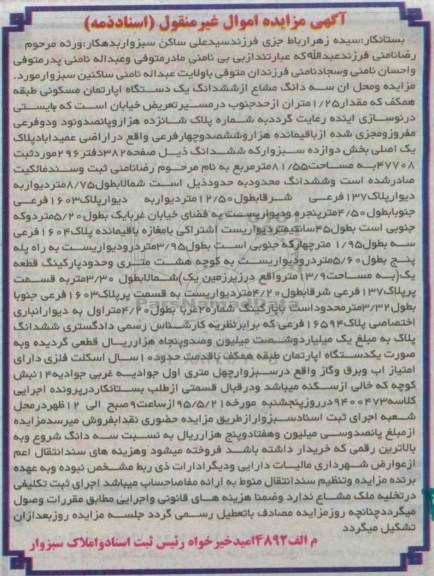 آگهی مزایده اموال غیرمنقول (اسنادذمه)
بستانکار:سیده زهرارباط جزی فرزندسیدعلی ساکن سبزواربدهکار:ورثه مرحوم
رضانامنی فرزندعبدالله که عبارتندازبی بی نامنی مادرمتوفی وعبداله نامنی پدرمتوفی
واحسان نامنی وسجادنامنی فرزندان متوفی باولایت عبداله نامنی ساکنین سبزوارمورد.
مزایده ومحل ان سه دانگ مشاع ازششدانگ یک دستگاه اپارتمان مسکونی طبقه
همکف که مقدار۱/۲۵متران ازحدجنوب درمسیرتعریض خیابان است که بایستی
درنوسازی اینده رعایت گرددبه شماره پلاک شانزده هزاروپانصدونود ودوفرعی
مفروزومجزی شده ازباقیمانده هزاروششصدوچهارفرعی واقع دراراضی عمیدابادپلاک
یک اصلی بخش دوازده سبزوارکه ششدانگ ذیل صفحه۳۸۲دفتر۲۹۶موردثبت
۴۷۷۰۸به مساحت۸۱/۵۵مترمربع به نام مرحوم رضانامنی ثبت وسندمالکیت
صادرشده است وششدانگ محدودبه حدودذیل است شمالابطول۸/۷۵متردیواربه
دیوارپلاک۱۳۷فرعی شرقابطول۱۲/۵۰متردیواربه دیوارپلاک۱۶۰۳فرعی
جنوبابطول۴/۵۰مترپنجره ودیواریست به فضای خیابان غربابیک بطول۵/۲۰متردوکه
جنوبی است بطول۴۵سانتیمتردیواریست اشتراکی بامغازه باقیمانده پلاک۱۶۰۴فرعی
سه بطول۱/۹۵ مترچهارکه جنوبی است بطول۳/۹۵متردرودیواریست به راه پله
پنج بطول۵/۶۰متردرودیواریست به کوچه هشت متری وحدودپارکینگ قطعه
یک(به مساحت۱۳/۹مترواقع درزیرزمین یک)شمالابطول ۳/۳۰متربه قسمت
پرپلاک۱۳۷فرعی شرقابطول۴/۲۰متردیواریست به قسمت پرپلاک۱۶۰۳فرعی جنوبا
بطول۳/۳۲مترمحدوداست باپارکینگ شماره۲غربا بطول۴/۲۰متراول به دیوارانباری
اختصاصی پلاک۱۶۵۹۴فرعی که برابرنظریه کارشناس رسمی دادگستری ششدانگ
پلاک به مبلغ یک میلیاردوشصت میلیون وصدوپنجاه هزارریال قطعی گردیده وبه
صورت یکدستگاه اپارتمان طبقه همکف باقدمت حدود۱۰سال اسکلت فلزی دارای
امتیاز اب وبرق وگاز واقع درسبزوارچهل متری اول جوادیه غربی جوادیه۱۴نبش
کوچه که خالی ازسکنه میباشد ودرقبال قسمتی ازطلب بستانکاردرپرونده اجرایی
کلاسه۹۴۰۰۴۷۳درروزپنجشنبه مورخه۹۵/۵/۲۱ازساعت۹صبح الی ۱۲ظهردرمحل
شعبه اجرای ثبت اسنادسبزوارازطریق مزایده حضوری نقدابفروش میرسدمزایده
ازمبلغ پانصدوسی میلیون وهفتادوپنج هزارریال به نسبت سه دانگ شروع وبه
بالاترین رقمی که خریدار داشته باشد فروخته میشود وهزینه های سندانتقال اعم
ازعوارض شهرداری مالیات دارایی ودیگرادارات ذی ربط مشخص نبوده وبه عهده
برنده مزایده وتنظیم سندانتقال منوط به ارائه مفاصاحساب میباشد اجرای ثبت تکلیفی
درتخلیه ملک مشاع ندارد وضمنا هزینه های قانونی واجرایی مطابق مقررات وصول
میگرددچنانچه روزمزایده مصادف باتعطیل رسمی گردد جلسه مزایده روزبعدازان
تشکیل میگردد
م الف۴۸۹۲امیدخیرخواه رئیس ثبت اسنادواملاک سبزوار